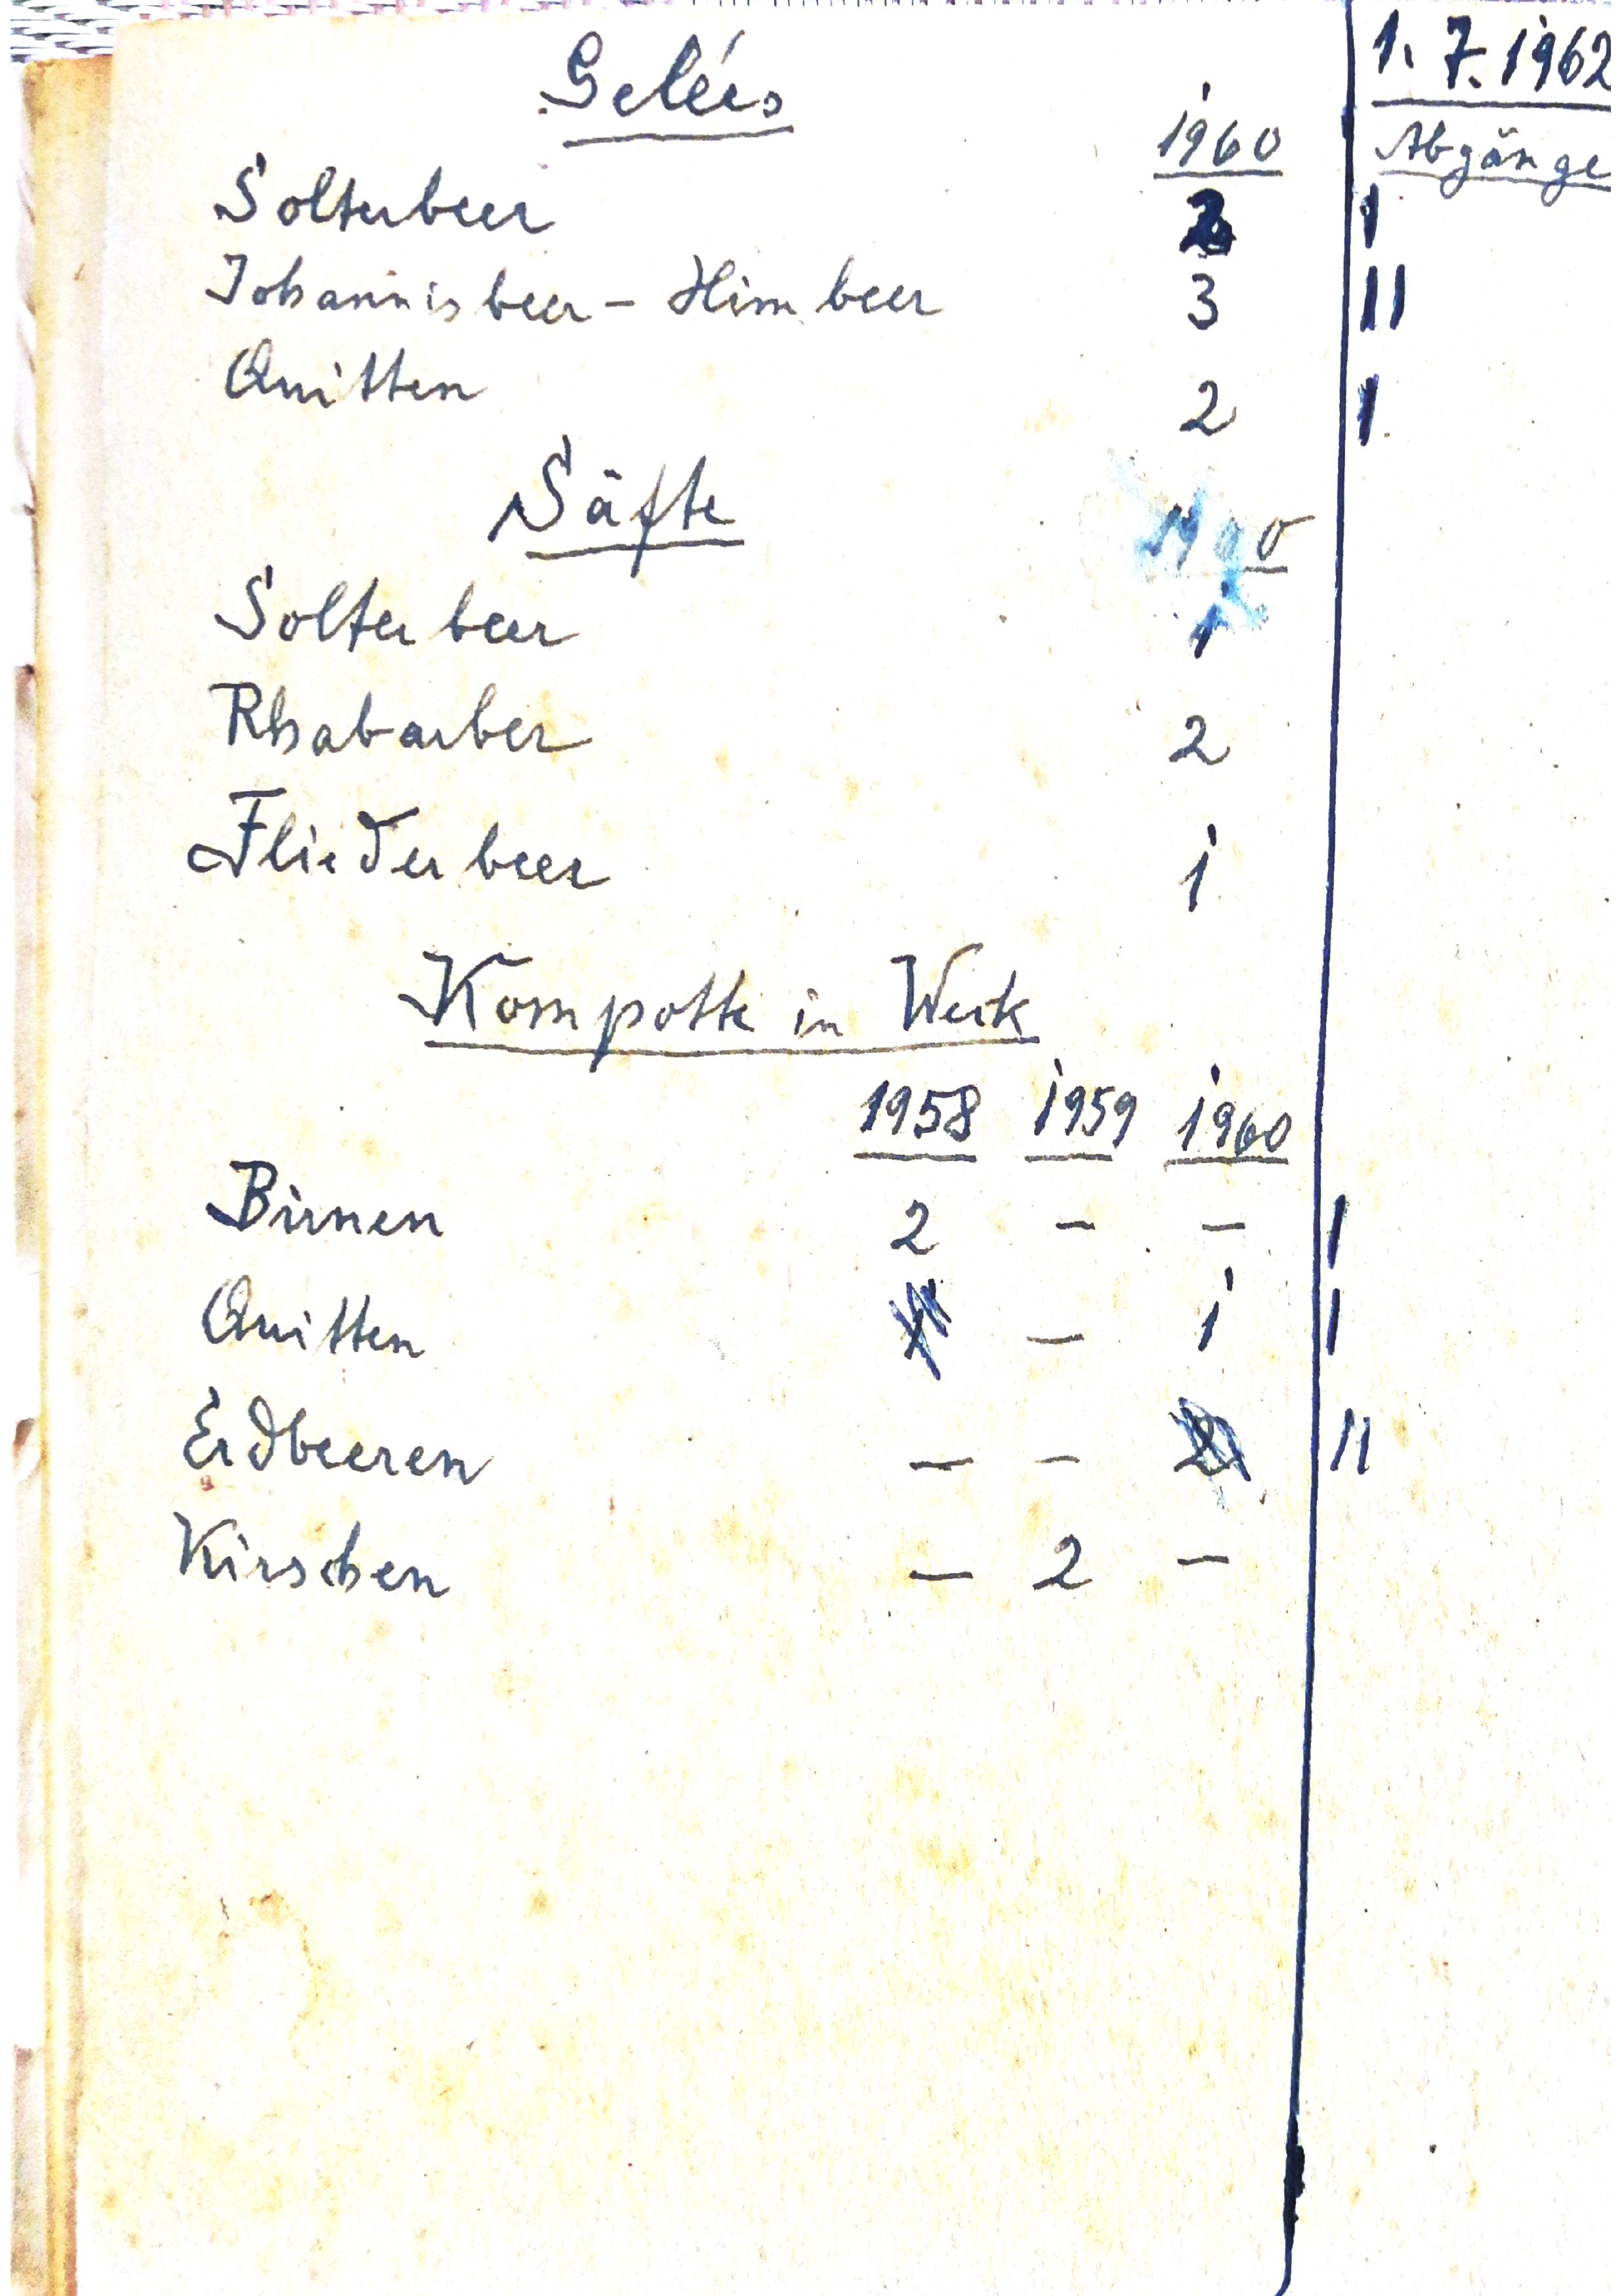 1. 7. 1962
Gelées 1960 Abgänge
Solterbeer 2 I
Johannisbeer - Himbeer 3 II
Quitten 2 I
Säfte
Solterbeer 1
Rhabarber 2
Fliederbeer 1
Kompotte in Weck
1958 1959 1960
Birnen 2 — — I
Quitten — 1 I
Erdbeeren — — 2 II
Kirschen — 2 —